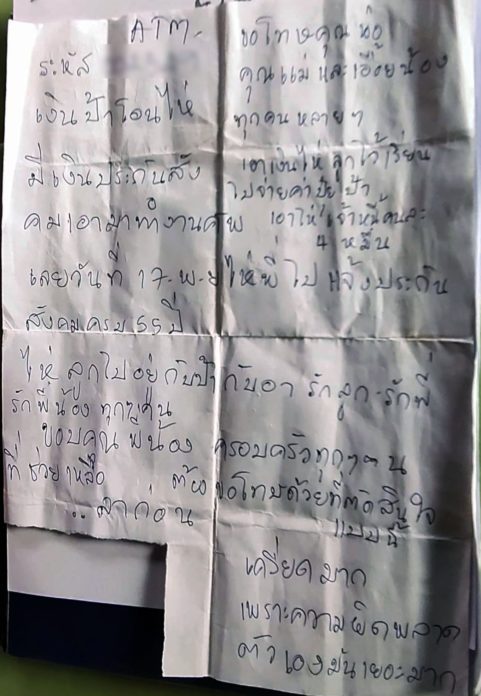 ATM-
ระหัส
เงินป้าโอนไห่
มีเงินประกันสัง
คมเอามาทำงานศพ
เลยวันที่ 17-พ-ย ไห่พี่ไปแจ้งประกัน
สังคมครบ 55 ปี
ขอโทษคุณพ่อ
คุณแม่ และเอื้อยน้อง
ทุกคน หลายๆ
เอาเงินไห่ ลูกไว้เรียน
ไปจ่ายค่า ป้า
เอาไห่เจ้าหนี้คนละ
4 หมื่น
ไห่ ลูกไปอยู่กับป้ากับอา รักลูก-รักพี่
รักพี่น้อง ทุกๆคน
ขอบคุณ พี่น้อง ครอบครัวทุกๆคน
ที่ช่วยเหลือ ต้องขอโทษด้วยที่ตัดสินใจ
แบบนี้
..ลาก่อน
เครียดมาก
เพราะความผิดพลาด
ตัวเองมันเยอะมาก